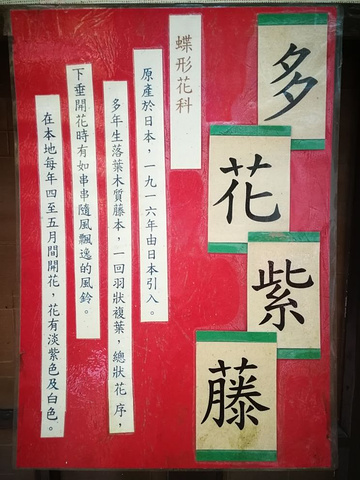 多花紫藤
蝶形花科
原產於日本，一九一六年由日本引入。
多年生落葉木質藤本，一回羽狀複葉，總狀花序，
下垂開花時有如串串隨風飄逸的風鈴。
在本地每年四至五月間開花，花有淡紫色及白色。